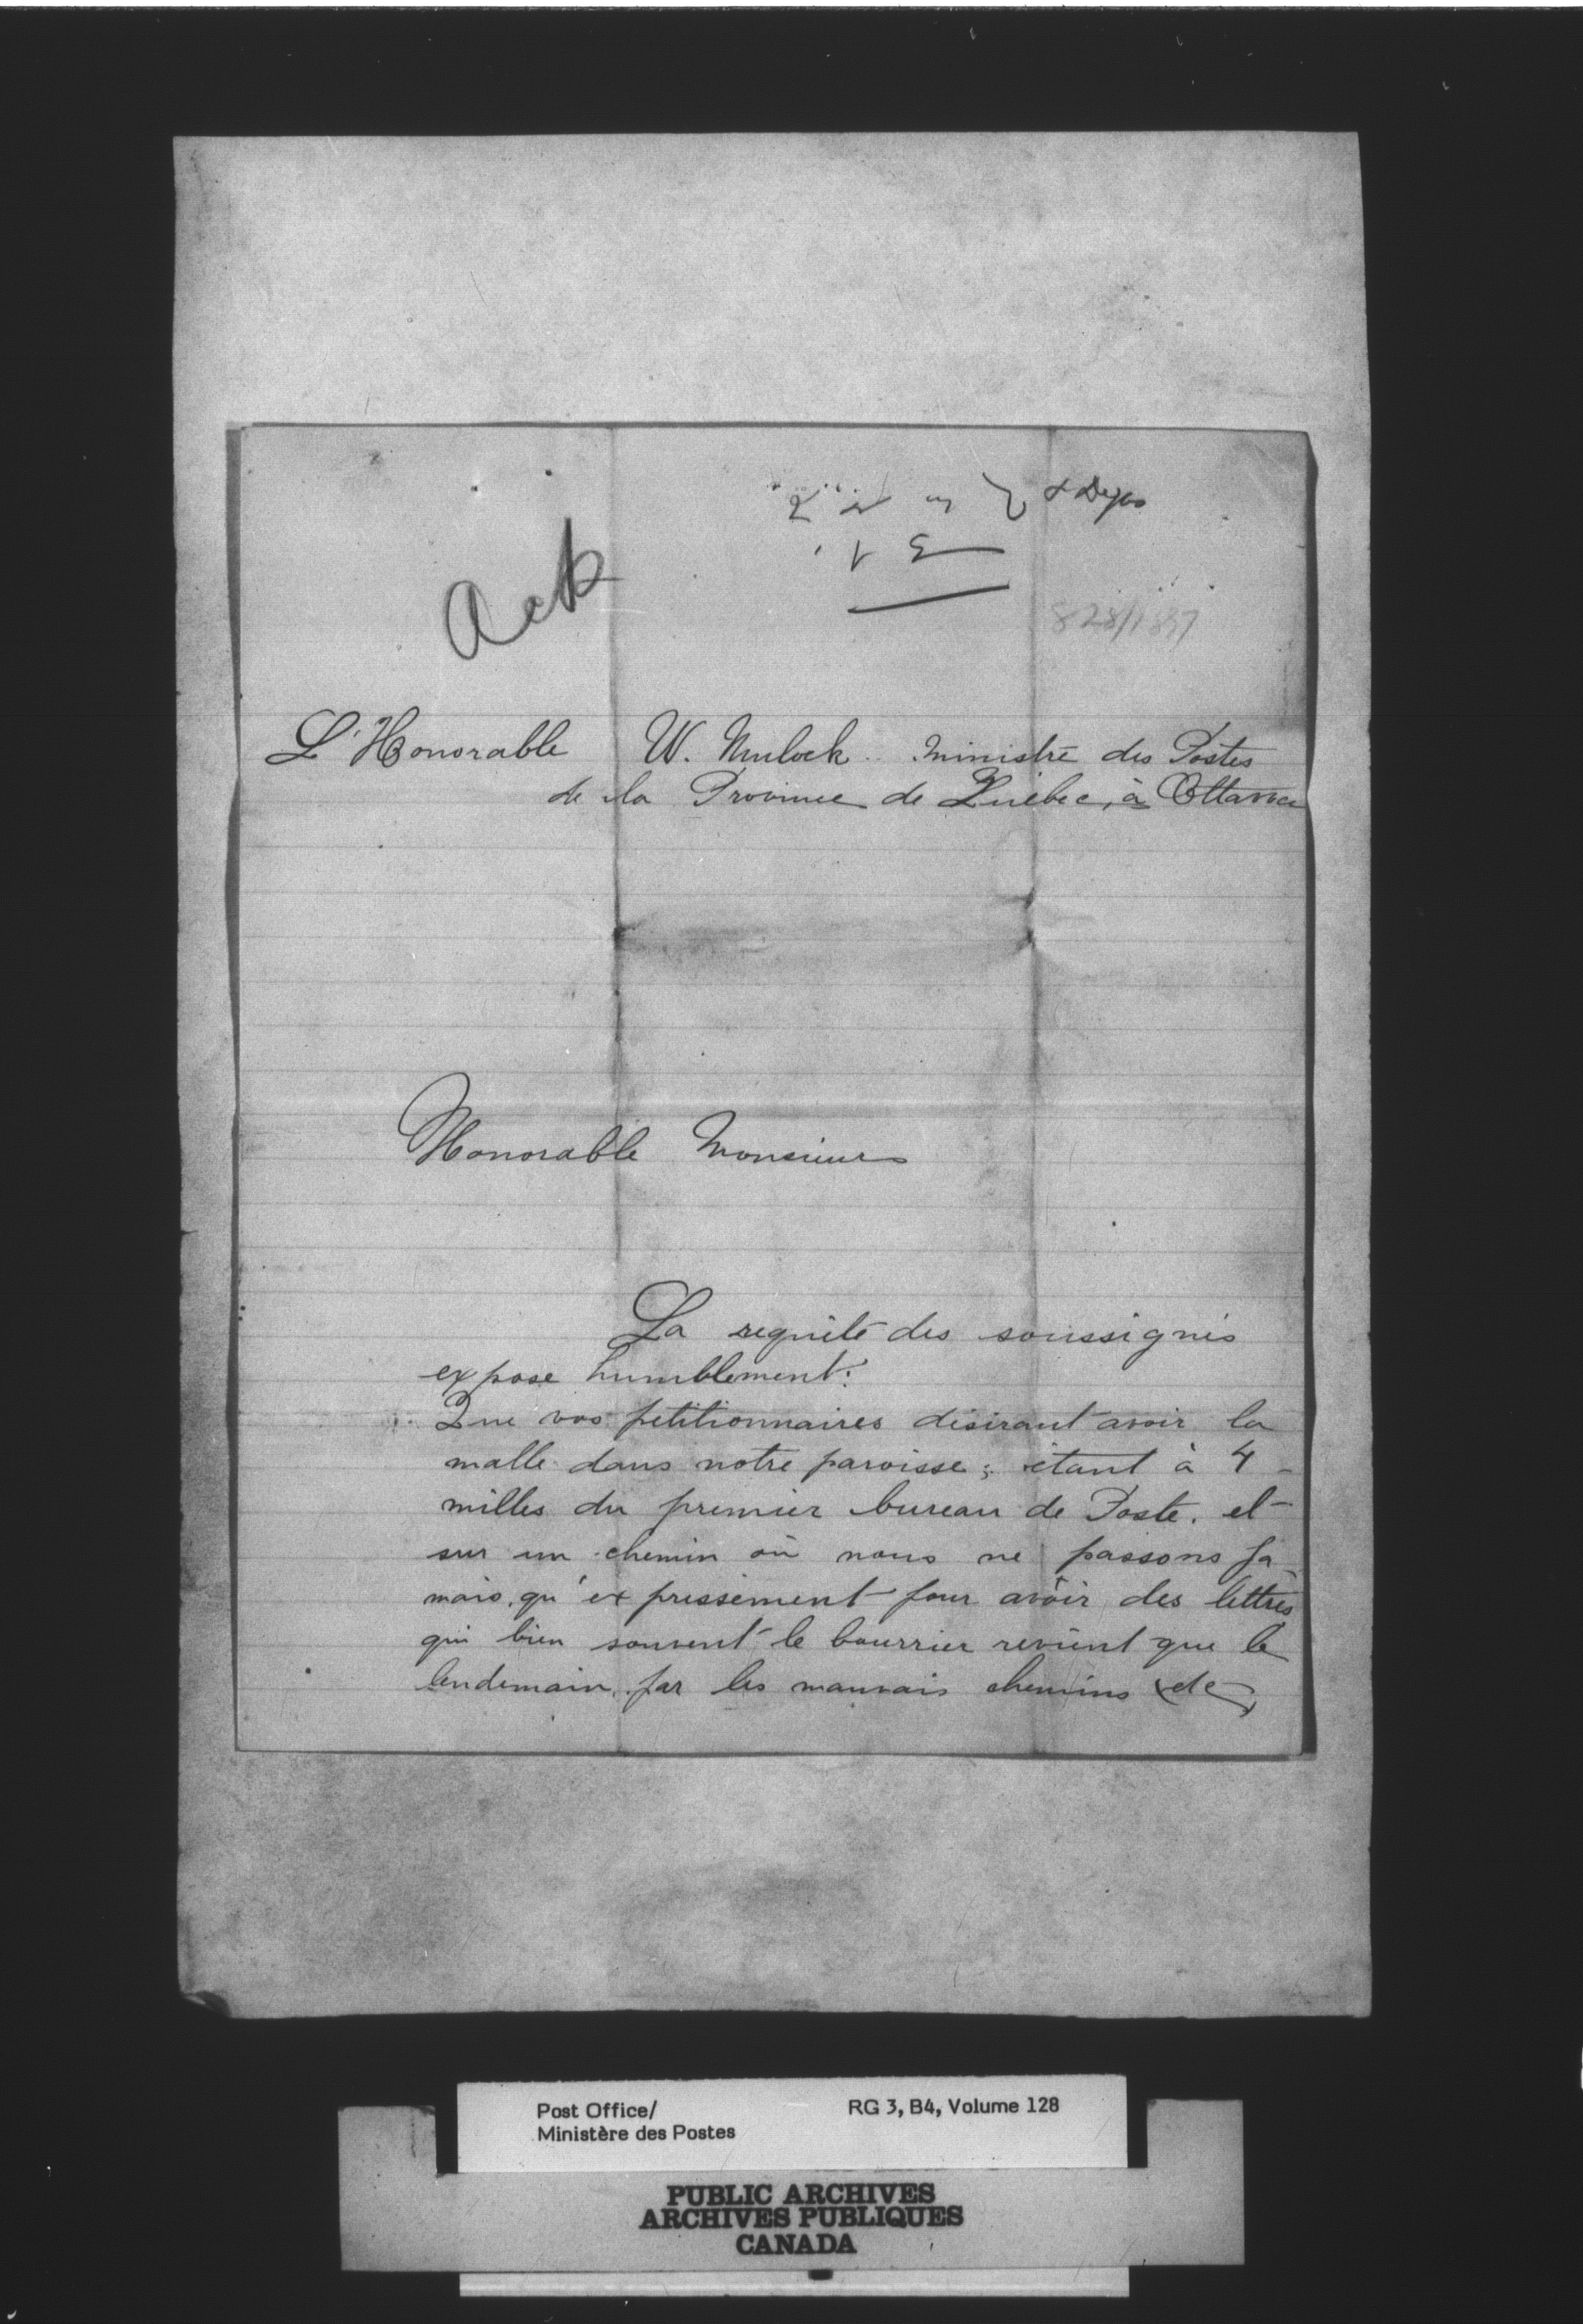 Ack
828/1897
L'Honorable W. Mulock ministre des Postes
de la Province de Québec, à Ottawa
Honorable Monsieur
La requête des soussignés
expose humblement:
Que vos petitionnaires désirant avoir la
malle dans notre paroisse; étant à 4
milles du premier bureau de Poste. et
sur un chemin où nous ne passons ja
mais, qu'expressement pour avoir des lettres
qui bien souvent le bourrier revient que le
lendemain, par les mauvais chemins de
Post Office/
Ministère des Postes
RG 3, B4, Volume 128
PUBLIC ARCHIVES
ARCHIVES PUBLIQUES
CANADA